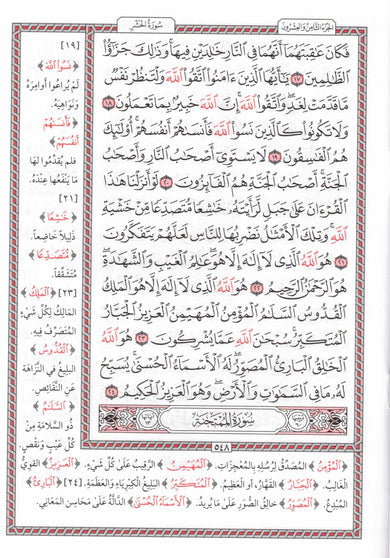 الجزء الثامن والعشرون
سورة الحشر
فَكَانَ عَٰقِبَتَهُمَآ أَنَّهُمَا فِي ٱلنَّارِ خَٰلِدَيۡنِ فِيهَاۚ وَذَٰلِكَ جَزَٰٓؤُاْ
ٱلظَّٰلِمِينَ ١٧ يَٰٓأَيُّهَا ٱلَّذِينَ ءَامَنُواْ ٱتَّقُواْ ٱللَّهَ وَلۡتَنظُرۡ نَفۡسٞ
مَّا قَدَّمَتۡ لِغَدٖۖ وَٱتَّقُواْ ٱللَّهَۚ إِنَّ ٱللَّهَ خَبِيرُۢ بِمَا تَعۡمَلُونَ ١٨
وَلَا تَكُونُواْ كَٱلَّذِينَ نَسُواْ ٱللَّهَ فَأَنسَىٰهُمۡ أَنفُسَهُمۡۚ أُوْلَٰٓئِكَ
هُمُ ٱلۡفَٰسِقُونَ ١٩ لَا يَسۡتَوِيٓ أَصۡحَٰبُ ٱلنَّارِ وَأَصۡحَٰبُ
ٱلۡجَنَّةِۚ أَصۡحَٰبُ ٱلۡجَنَّةِ هُمُ ٱلۡفَآئِزُونَ ٢٠ لَوۡ أَنزَلۡنَا هَٰذَا
ٱلۡقُرۡءَانَ عَلَىٰ جَبَلٖ لَّرَأَيۡتَهُۥ خَٰشِعٗا مُّتَصَدِّعٗا مِّنۡ خَشۡيَةِ
ٱللَّهِۚ وَتِلۡكَ ٱلۡأَمۡثَٰلُ نَضۡرِبُهَا لِلنَّاسِ لَعَلَّهُمۡ يَتَفَكَّرُونَ
٢١ هُوَ ٱللَّهُ ٱلَّذِي لَآ إِلَٰهَ إِلَّا هُوَۖ عَٰلِمُ ٱلۡغَيۡبِ وَٱلشَّهَٰدَةِۖ
هُوَ ٱلرَّحۡمَٰنُ ٱلرَّحِيمُ ٢٢ هُوَ ٱللَّهُ ٱلَّذِي لَآ إِلَٰهَ إِلَّا هُوَ ٱلۡمَلِكُ
ٱلۡقُدُّوسُ ٱلسَّلَٰمُ ٱلۡمُؤۡمِنُ ٱلۡمُهَيۡمِنُ ٱلۡعَزِيزُ ٱلۡجَبَّارُ
ٱلۡمُتَكَبِّرُۚ سُبۡحَٰنَ ٱللَّهِ عَمَّا يُشۡرِكُونَ ٢٣ هُوَ ٱللَّهُ
ٱلۡخَٰلِقُ ٱلۡبَارِئُ ٱلۡمُصَوِّرُۖ لَهُ ٱلۡأَسۡمَآءُ ٱلۡحُسۡنَىٰۚ يُسَبِّحُ
لَهُۥ مَا فِي ٱلسَّمَٰوَٰتِ وَٱلۡأَرۡضِۖ وَهُوَ ٱلۡعَزِيزُ ٱلۡحَكِيمُ ٢٤
سورة الممتحنة
٥٤٨
[١٩]
﴿نَسُوا اللَّهَ﴾
لَمْ يُرَاعُوا أَوَامِرَهُ
وَنَوَاهِيَهُ.
﴿فَأَنسَىٰهُمْ
أَنفُسَهُمْ﴾
فلم يُقَدِّمُوا لها
مَا يَنْفَعُهَا عِنْدَهُ.
[٢١]
﴿خَٰشِعًا﴾
ذَلِيلاً خَاضِعاً.
﴿مُّتَصَدِّعًا﴾
مُتَشَقِّقاً.
[٢٣] ﴿الْمَلِكُ﴾
المَالِكُ لِكُلِّ شَيْءٍ
المُتَصَرِّفُ فِيهِ.
﴿الْقُدُّوسُ﴾
البليغُ في النَّزَاهَةِ
عَنِ النَّقَائِصِ.
﴿السَّلَٰمُ﴾
ذُو السَّلَامَةِ مِنْ
كُلِّ عَيْبٍ وَنَقْصٍ.
﴿الْمُؤْمِنُ﴾ المُصَدِّقُ لِرُسُلِهِ بِالمُعْجِزَاتِ. ﴿الْمُهَيْمِنُ﴾ الرَّقِيبُ عَلَى كُلِّ شَيْءٍ. ﴿الْعَزِيزُ﴾ القويُّ
الغَالِبُ. ﴿الْجَبَّارُ﴾ القَهَّارُ، أو العَظِيمُ. ﴿الْمُتَكَبِّرُ﴾ البَلِيغُ الكِبْرِيَاءِ وَالعَظَمَةِ. [٢٤] ﴿الْبَارِئُ﴾
المُبْدِعُ. ﴿الْمُصَوِّرُ﴾ خَالِقُ الصُّوَرِ عَلَى مَا يُرِيدُ. ﴿الْأَسْمَاءُ الْحُسْنَىٰ﴾ الدَّالَّةُ عَلَى مَحَاسِنِ المَعَانِي.